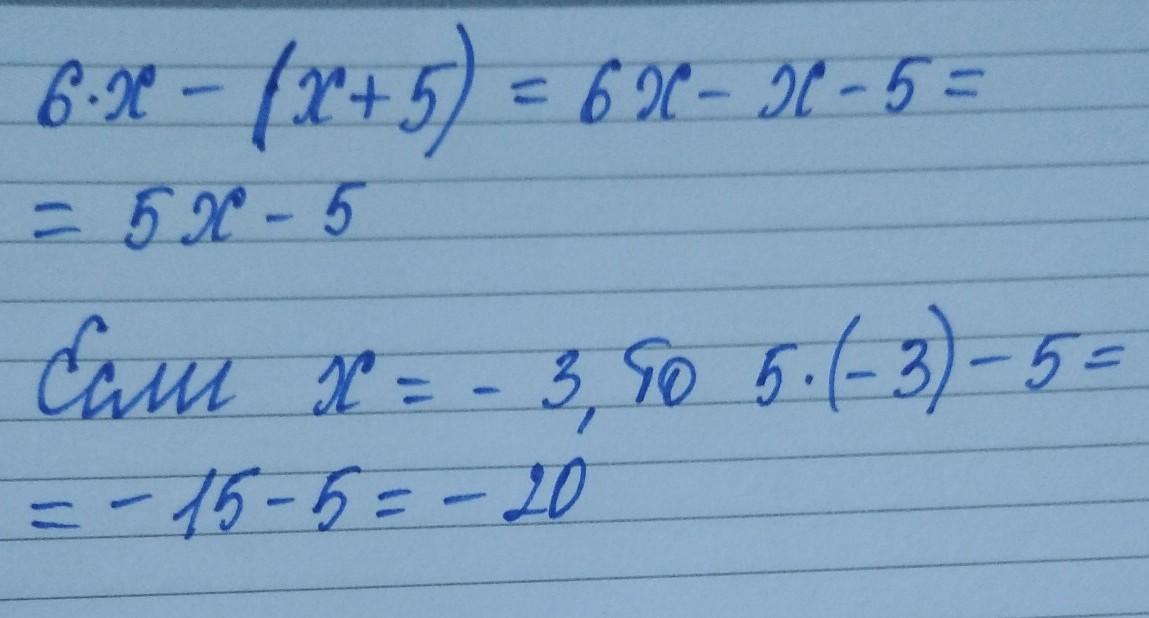 6·x - (x+5) = 6x - x - 5 =
= 5x - 5
Если x = - 3, то 5·(-3) - 5 =
= - 15 - 5 = - 20